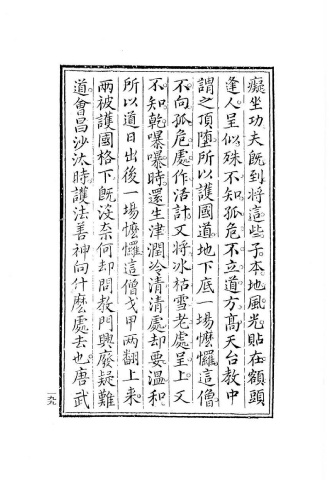 癡坐功夫旣到將這些子本地風光貼在額頭
逢人呈似殊不知孤危不立道方高天台教中
謂之頂墮所以護國道地下底一場懡㦬這僧
不向孤危處作活計又將氷枯雪老處呈上又
不知乾曝曝時還生津潤冷清清處却要溫和
所以道日出後一場懡㦬這僧戈甲兩翻上来
兩被護國格下旣沒奈何却問教門興廢疑難
道會昌沙汰時護法善神向什麽處去也唐武
一九